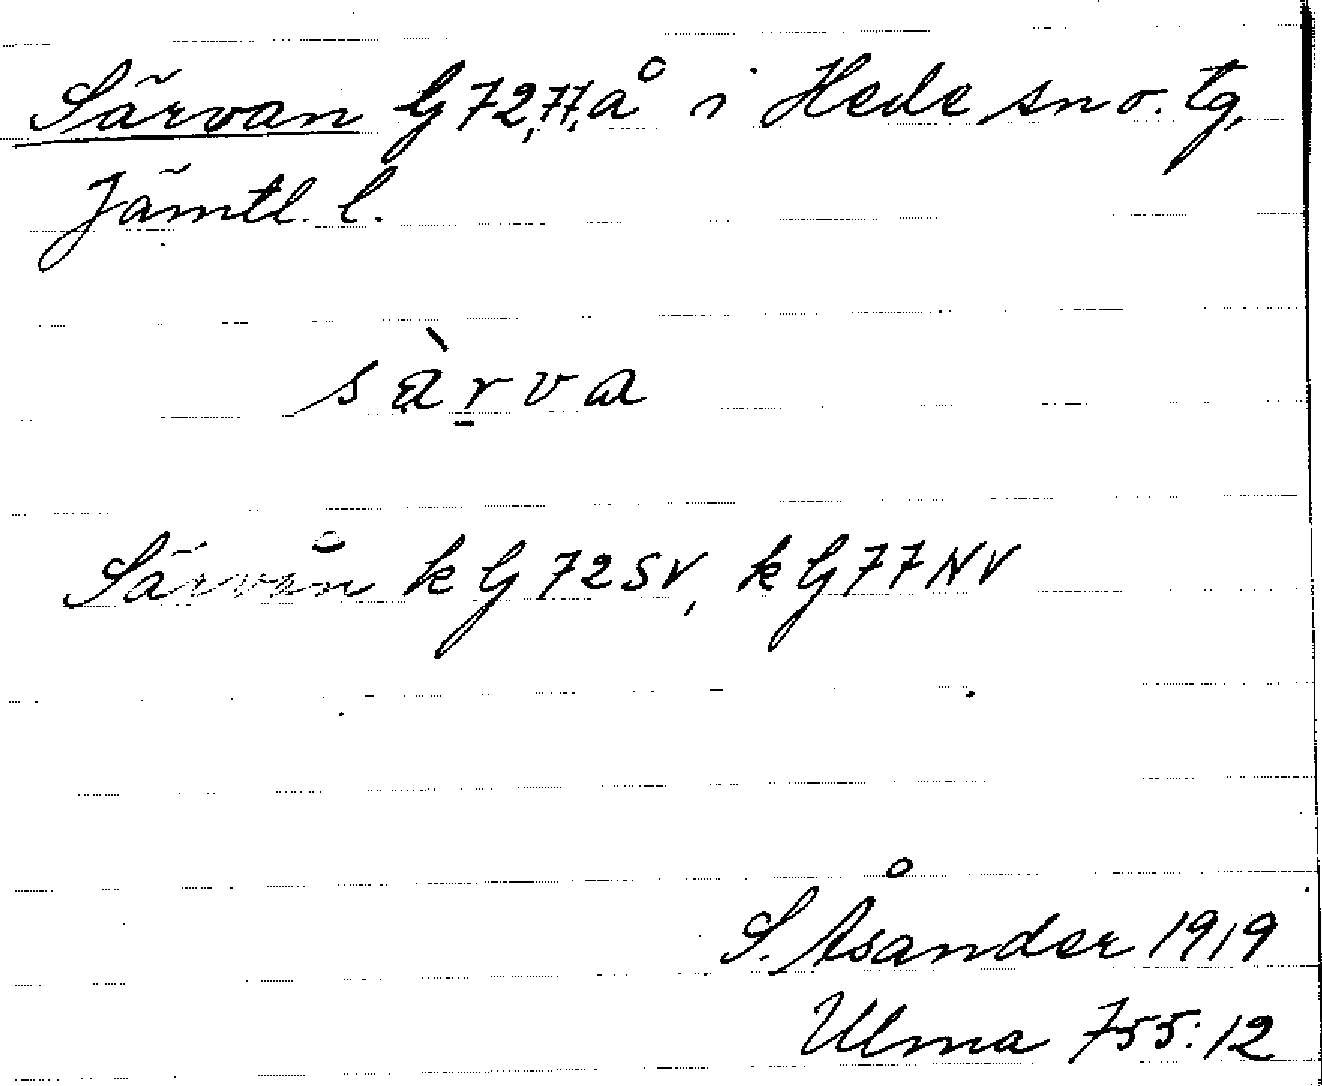 Särvan G 72,77, å i Hede sn o. tg,
Jämtl. l.
sàrva
Särvån k G 72 SV, k G 77 NV
S. Åsander 1919
Ulma 755:12